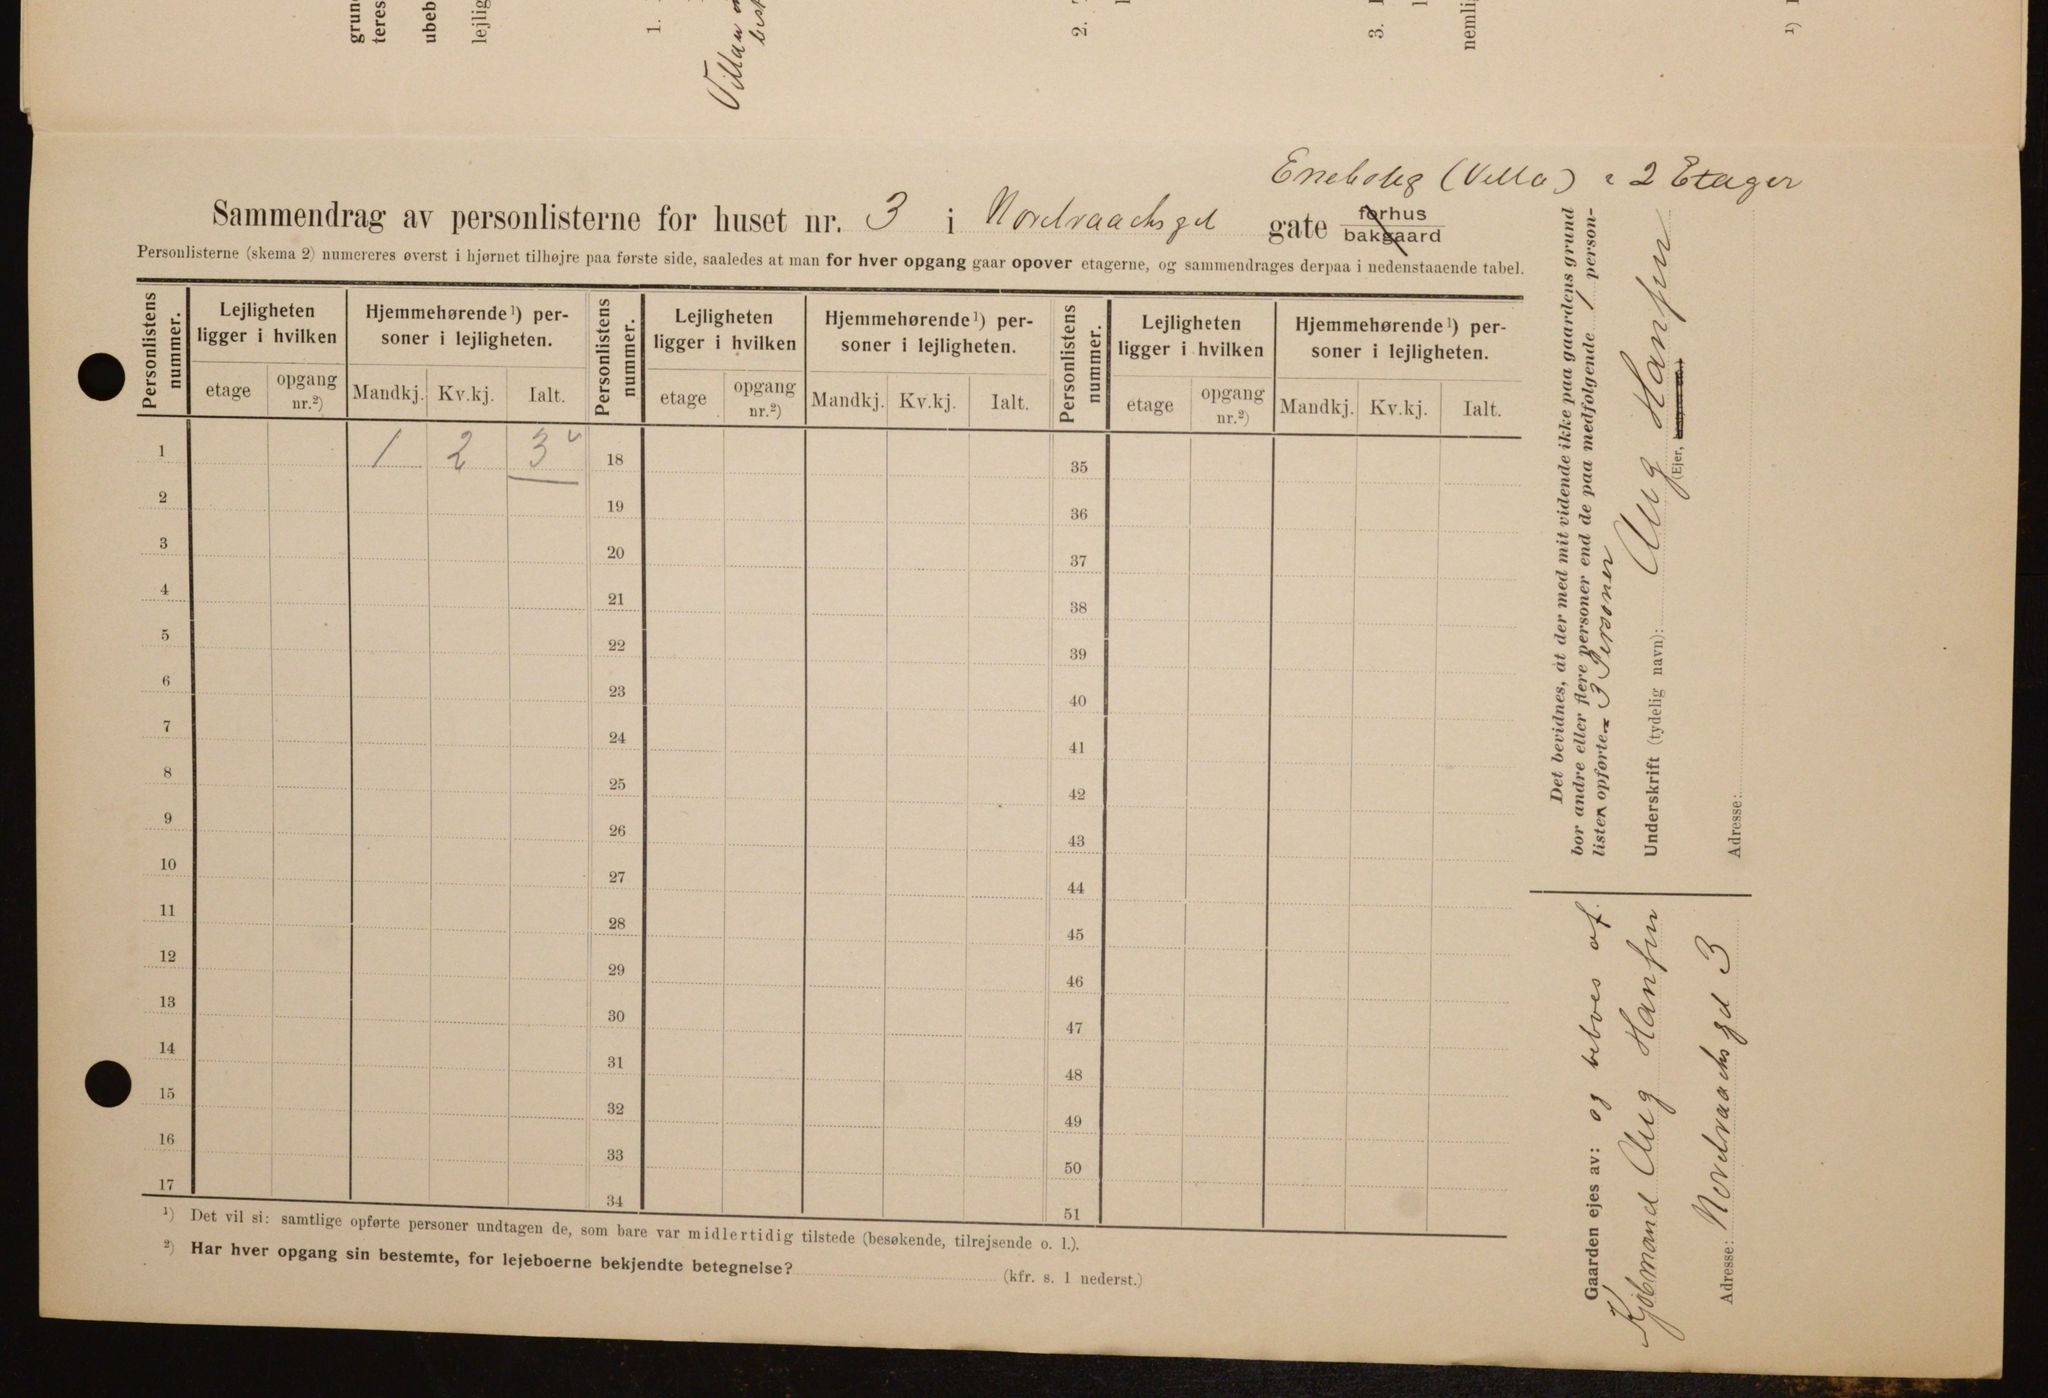 grun
teres
ubeb
lejlig
1.
Villaen
2.
3.
nemlig
1)
Enebolig (Villa) i 2 Etager
Sammendrag av personlisterne for huset nr. 3 i Nordraachsgd gate forhus
bakgaard
Personlisterne (skema 2) numereres øverst i hjørnet tilhøjre paa første side, saaledes at man for hver opgang gaar opover etagerne, og sammendrages derpaa i nedenstaaende tabel.
Personlistens nummer. Lejligheten ligger i hvilken Hjemmehørende 1) personer i lejligheten. Personlistens nummer. Lejligheten ligger i hvilken Hjemmehørende 1) personer i lejligheten. Personlistens nummer. Lejligheten ligger i hvilken Hjemmehørende 1) personer i lejligheten.
etage opgang nr.2) Mandkj. Kv.kj. Ialt. etage opgang nr.2) Mandkj. Kv.kj. Ialt. etage opgang nr.2) Mandkj. Kv.kj. Ialt.
1 1 2 3 18 35
2 19 36
3 20 37
4 21 38
5 22 39
6 23 40
7 24 41
8 25 42
9 26 43
10 27 44
11 28 45
12 29 46
13 30 47
14 31 48
15 32 49
16 33 50
17 34 51
1) Det vil si: samtlige opførte personer undtagen de, som bare var midlertidig tilstede (besøkende, tilrejsende o. l.).
2) Har hver opgang sin bestemte, for lejeboerne bekjendte betegnelse? (kfr. s. 1 nederst.)
Det bevidnes, at der med mit vidende ikke paa gaardens grund
bor andre eller flere personer end de paa medfølgende 1 person-
listen opførte 3 Personer
Underskrift (tydelig navn): Aug Hansen
(Ejer,
Adresse:
Gaarden ejes av: og beboes af
Kjøbmand Aug Hansen
Adresse: Nordraachsgd 3